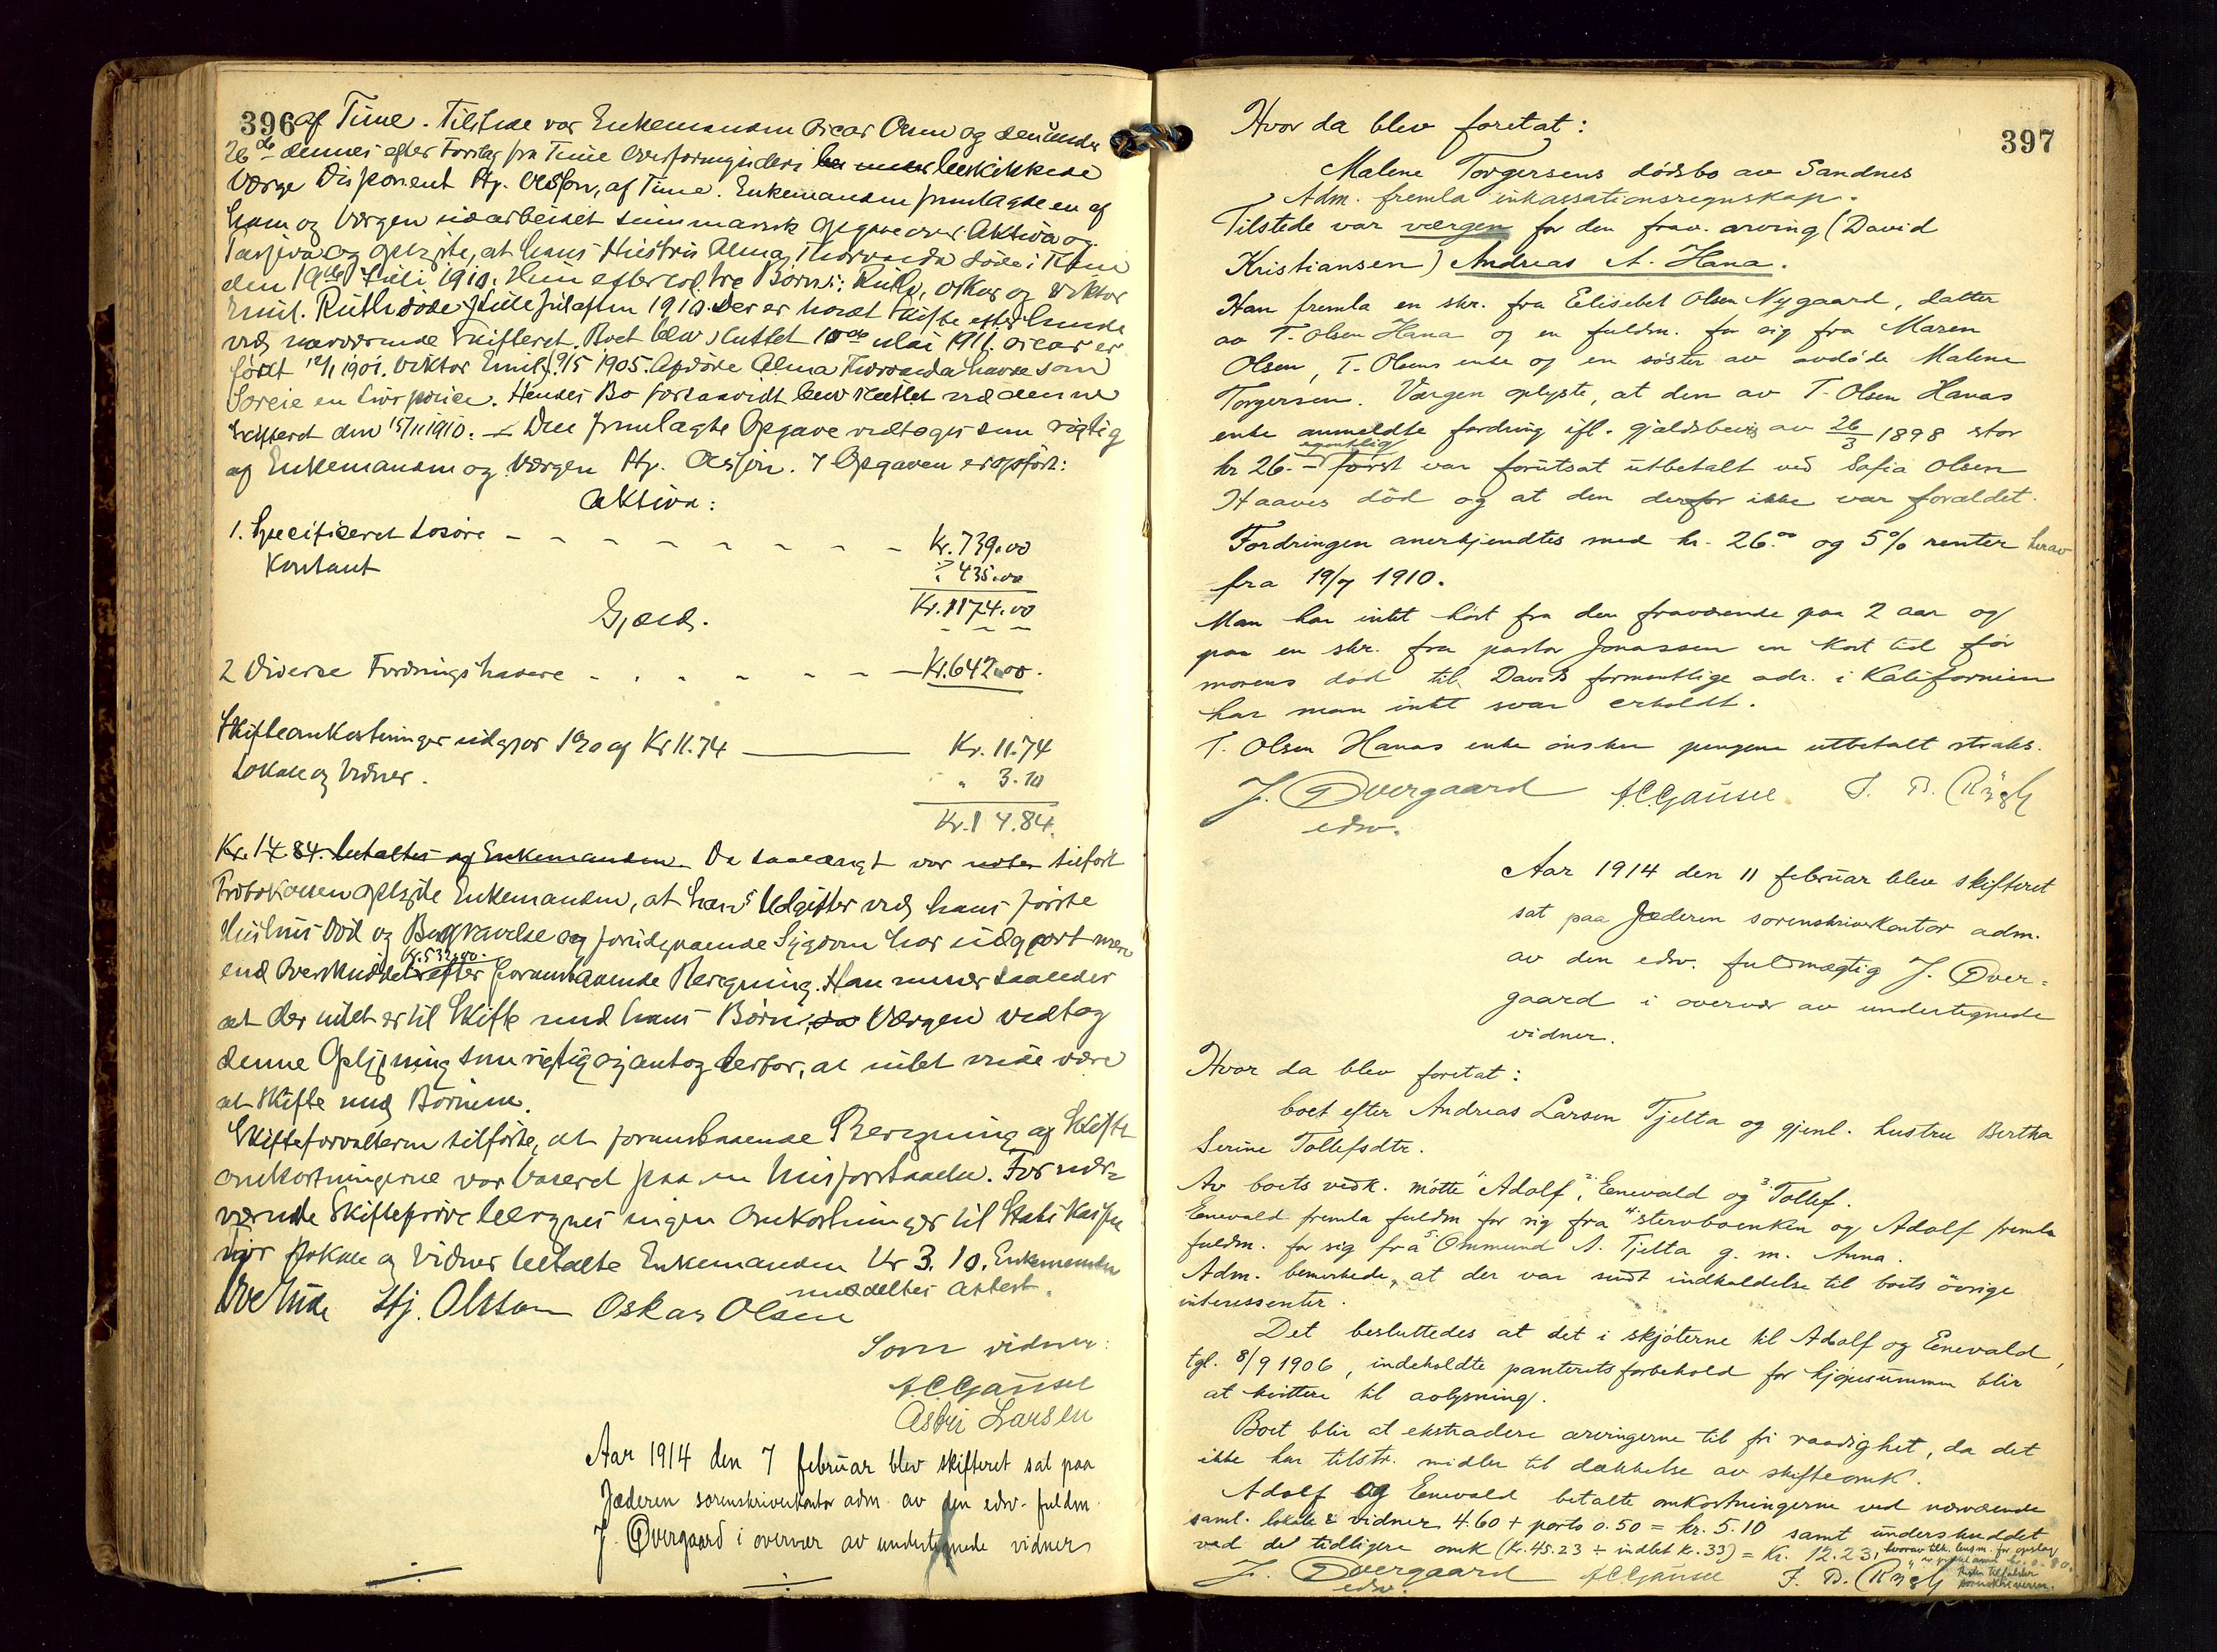 396
af Time. Tilstede var Enkemanden Oscar Olsen og den under
26de dennes efter Forslag fra Time Overformynderi beskikkede
Værge Disponent Hj. Olsson, af Time. Enkemanden fremlagde en af
ham og Værgen udarbeidet summarisk Opgave over Aktiva og
Passiva og oplyste, at hans Hustru Alma Thorvarda døde i Time
den 19de Juli 1910. Hun efterlod tre Børn: Ruth, Oskar og Viktor
Emil. Ruth døde Juleaften 1910. Der er holdt Skifte efter hende
ved nærværende Skifteret. Boet blev sluttet 10de Mai 1911. Oscar er
født 12/1 1901. Viktor Emil f. 9/5 1905. Afdøde Alma Thorvarda havde som
Særeie en Livspolice. Hendes Bo forsaavidt blev sluttet ved denne
Skifteret den 15/11 1910. Den fremlagte Opgave vedtoges som rigtig
af Enkemanden og Værgen Hj. Olsson. I Opgaven er opført:
Aktiva:
1. Specificeret Løsøre - - - - - - - - Kr. 739.00
Kontant " 435.00
Kr. 1174.00
Gjæld.
2 Diverse Fordringshavere - - - - - - Kr. 642.00.
Skifteomkostninger udgjør 1% af Kr 11.74 — Kr. 11.74
Lokale og Vidner. " 3.10
Kr. 14.84.
Kr. 14.84. betaltes af Enkemanden. Da saalangt var tilført
Protokollen oplyste Enkemanden, at hans Udgifter ved hans første
Hustrus Død og Begravelse og forudgaaende Sygdom har udgjort mere
Kr. 532.00.
end Overskuddet efter foranstaaende Beregning. Han mener saaledes
at der intet er til Skifte med hans Børn, Værgen vedtog
denne Oplysning som rigtig og antog derfor, at intet vilde være
at skifte med Børnene.
Skifteforvalteren tilførte, at foranstaaende Beregning af Skifte
omkostningerne var baseret paa en Misforstaaelse. For nær=
værende Skifteprøve beregnes ingen Omkostninger til Statskassen
For Lokale og Vidner betalte Enkemanden Kr 3.10. Enkemanden
meddeltes Attest.
Hj. Olsson Oskar Olsen
Som vidner:
A C Gausel
Astri Larsen
Aar 1914 den 7 februar blev skifteret sat paa
Jæderen sorenskriverkontor adm. av den edsv. fuldm.
J. Øvergaard i overvær av undertegnede vidner
397
Hvor da blev foretat:
Malene Torgersens dødsbo av Sandnes
Adm. fremla inkassationsregnskap.
Tilstede var værgen for den frav. arving (David
Kristiansen) Andreas A. Hana.
Han fremla en skr. fra Elisebet Olsen Nygaard, datter
av T. Olsen Hana og en fuldm. for sig fra Maren
Olsen, T. Olsens enke og en søster av avdøde Malene
Torgersen. Værgen oplyste, at den av T. Olsen Hanas
enke anmeldte fordring ifl. gjældsbevis av 26/3 1898 stor
egentlig
kr 26.- først var forutsat utbetalt ved Safia Olsen
Haaves død og at den derfor ikke var forældet.
Fordringen anerkjendtes med kr. 26.00 og 5% renter herav
fra 19/7 1910.
Man har intet hørt fra den fraværende paa 2 aar og
paa en skr. fra pastor Jonassen en kort tid før
morens død til Davids formentlige adr. i Kalifornien
har man intet svar erholdt.
T. Olsen Hanas enke ønsker pengene utbetalt straks.
J. Øvergaard A C Gausel
edsv.
Aar 1914 den 11 februar blev skifteret
sat paa Jæderen sorenskriverkontor adm.
av den edsv. fuldmægtig J. Øver=
gaard i overvær av undertegnede
vidner.
Hvor da blev foretat:
boet efter Andreas Larsen Tjelta og gjenl. hustru Bertha
Serine Tollefsdtr.
Av boets vedk. møtte 1 Adolf, 2 Enevald og 3 Tollef.
Enevald fremla fuldm for sig fra 4 stervboenken og Adolf fremla
fuldm. for sig fra 5 Ommund A. Tjelta g. m. Anna.
Adm. bemerkede, at der var sendt indkaldelse til boets øvrige
interessenter.
Det besluttedes at det i skjøterne til Adolf og Enevald,
tgl. 8/9 1906, indeholdte panterets forbehold for kjøpesummen blir
at kvittere til avlysning.
Boet blir at ekstradere arvingerne til fri raadighet, da det
ikke har tilstr. midler til dækkelse av skifteomk.
Adolf og Enevald betalte omkostningerne ved nærværende
saml. lokale & vidner 4.60 + porto 0.50 = kr. 5.10 samt underskuddet
ved det tidligere omk (kr. 45.23 ÷ indbet kr. 33) = Kr. 12.23, hvorav tilk. lensm. for opslag
J. Øvergaard A C Gausel
edsv.